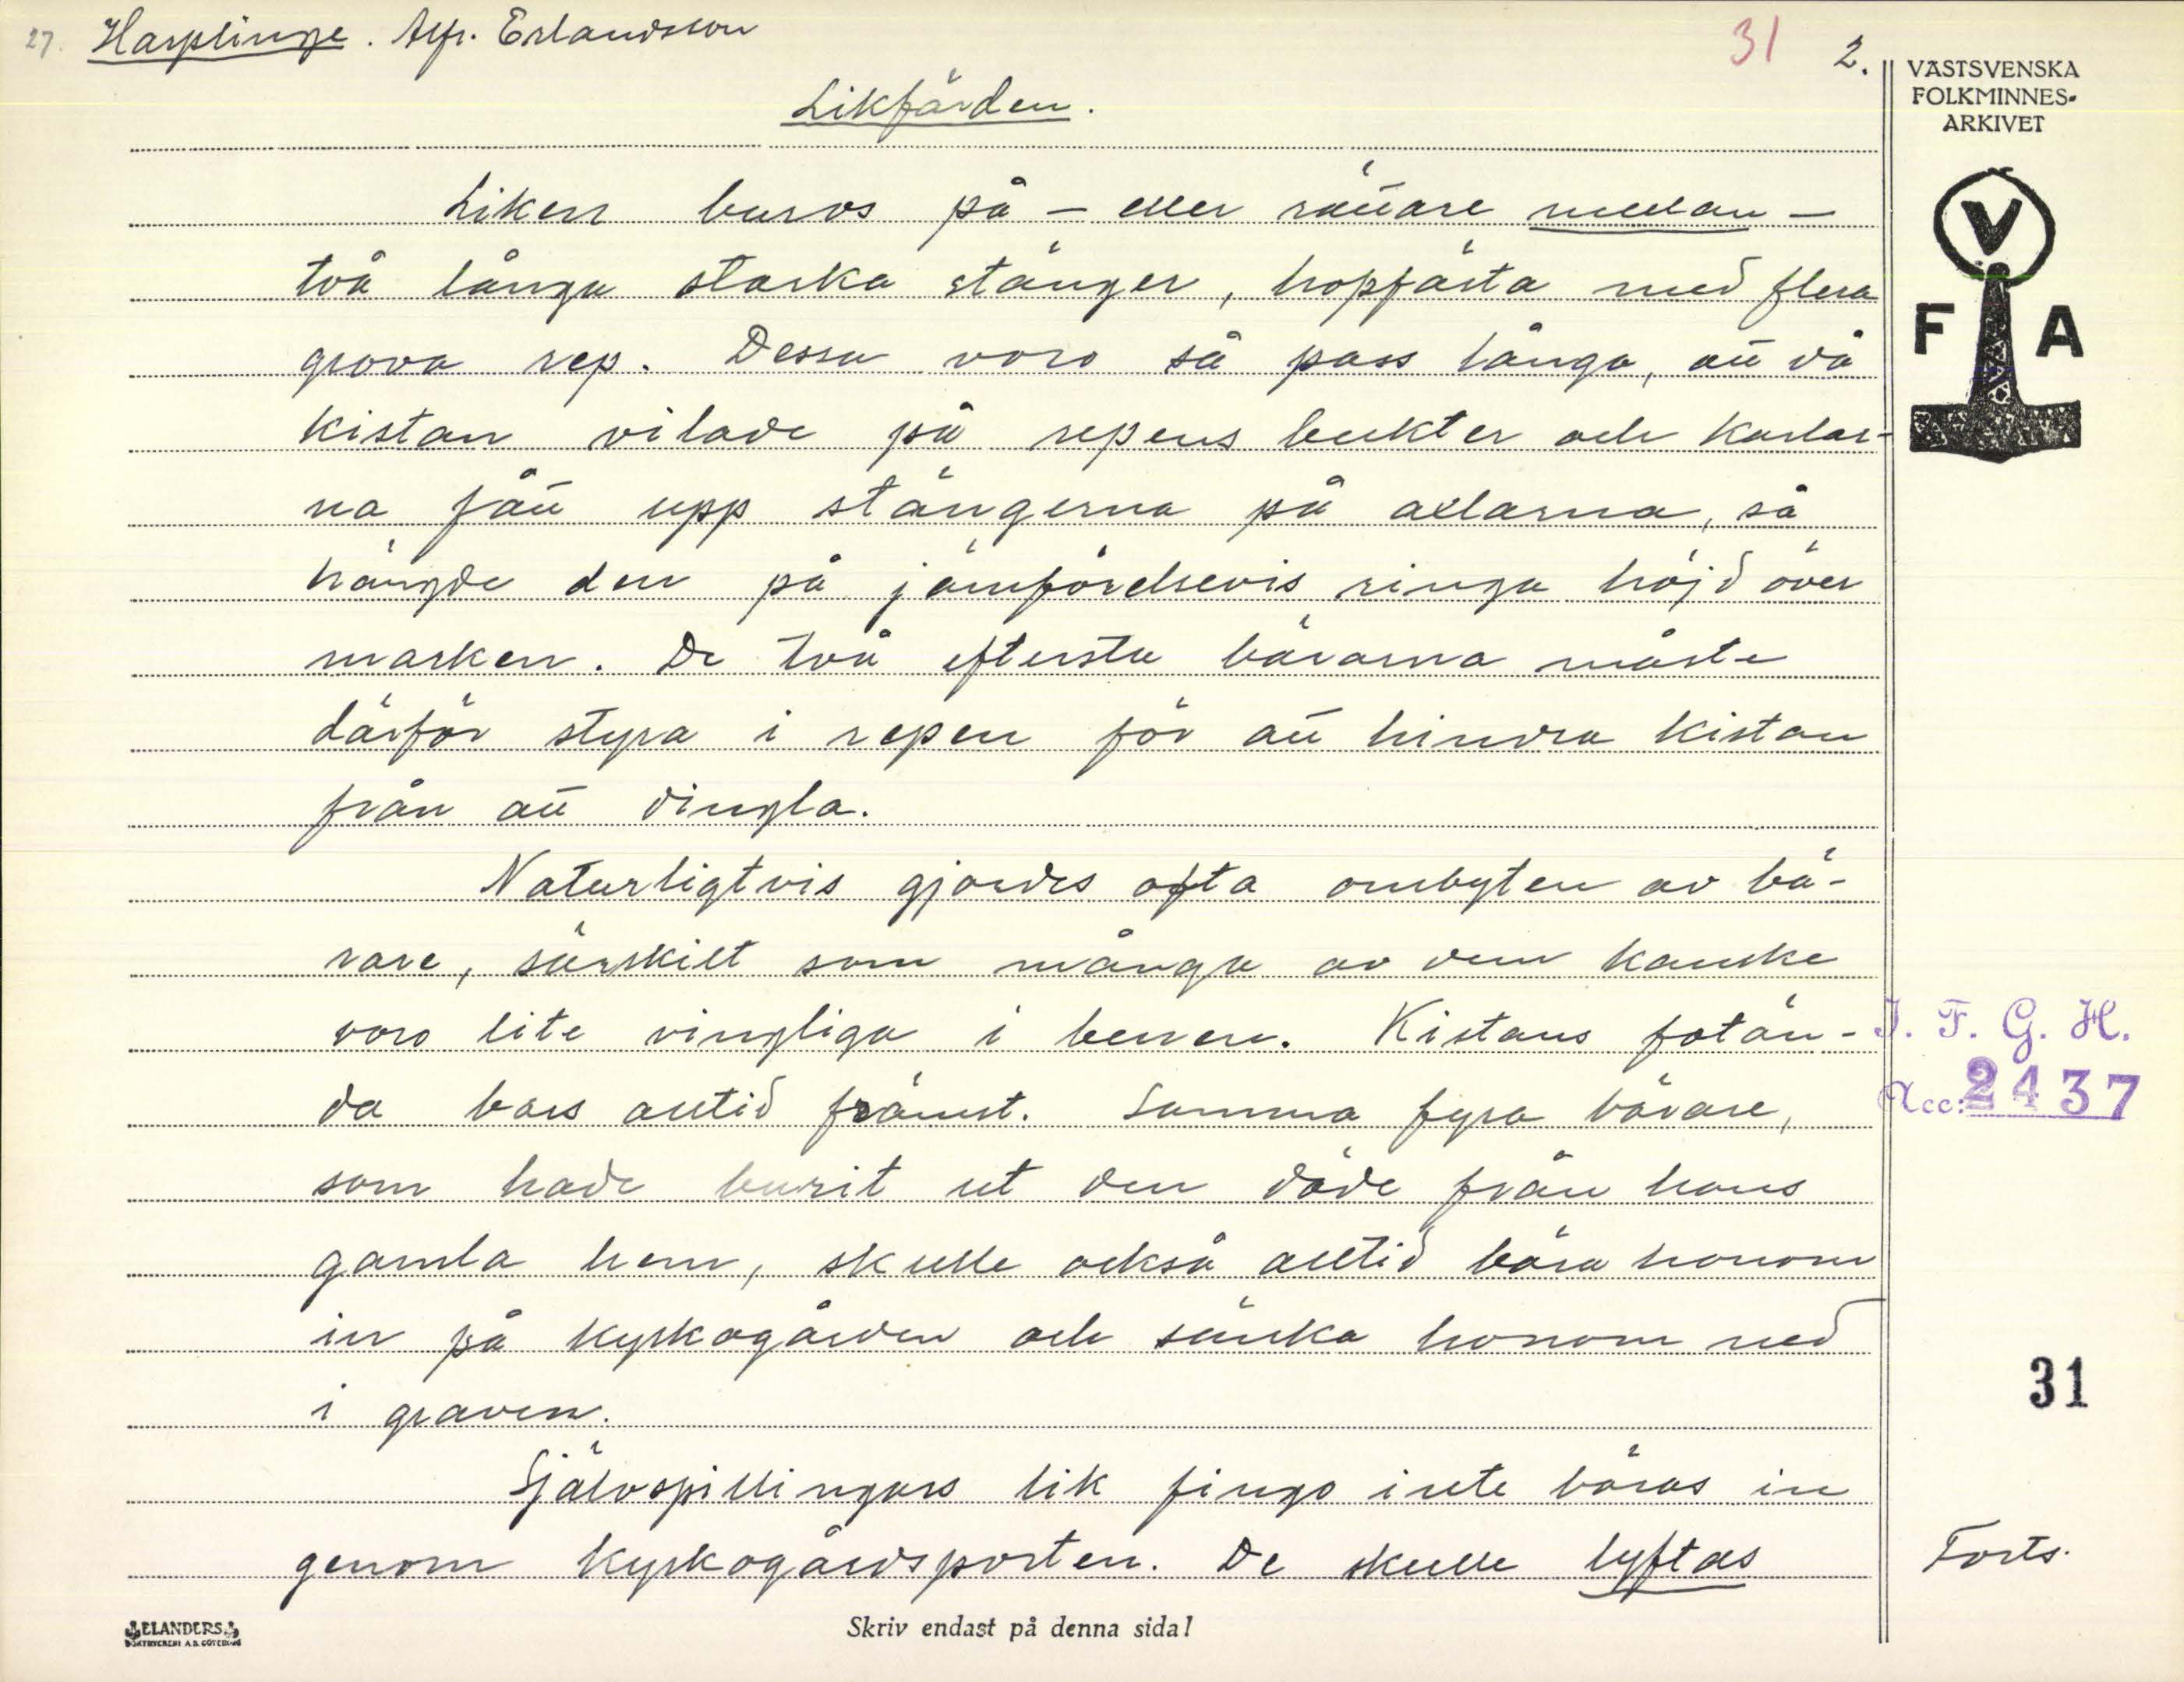 27. Harplinge. Alfr. Erlandsson
31
2.
VÄSTSVENSKA
FOLKMINNES-
ARKIVET
V
F A
Likfärden.
Liken buros på – eller rättare mellan –
två långa starka stänger, hopfästa med flera
grova rep. Dessa voro så pass långa, att då
kistan vilade på repens bukter och karlar-
na fått upp stängerna på axlarna, så
hängde den på jämförelsevis ringa höjd över
marken. De två eftersta bärarna måste
därför styra i repen för att hindra kistan
från att dingla.
Naturligtvis gjordes ofta ombyten av bä-
rare, särskilt som många av dem kanske
voro lite vingliga i benen. Kistans fotän-
da bars alltid främst. Samma fyra bärare,
som hade burit ut den döde från hans
gamla hem, skulle också alltid bära honom
in på kyrkogården och sänka honom ned
i graven.
Självspillingars lik fingo inte bäras in
genom kyrkogårdsporten. De skulle lyftas
I. F. G. H.
Acc: 2437
31
Forts.
ELANDERS
BOKTRYCKERI A.B. GÖTEBORG
Skriv endast på denna sida!